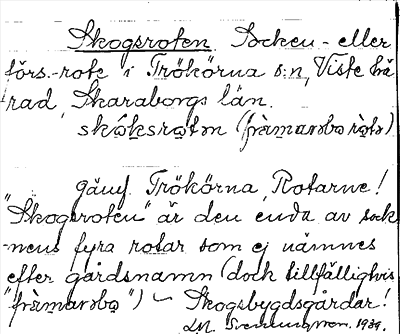 Skogsroten. Socken- eller
förs.-rote i Trökörna s:n, Viste hä
rad, Skaraborgs län.
skók̥srotən (frà̀marəbə ròtə)
jämf. Trökörna, Rotarne!
"Skogsroten" är den enda av sock-
nens fyra rotar som ej nämnes
efter gårdsnamn (dock tillfälligtvis
"frà̀marəbə") – Skogsbygdsgårdar!
1939.